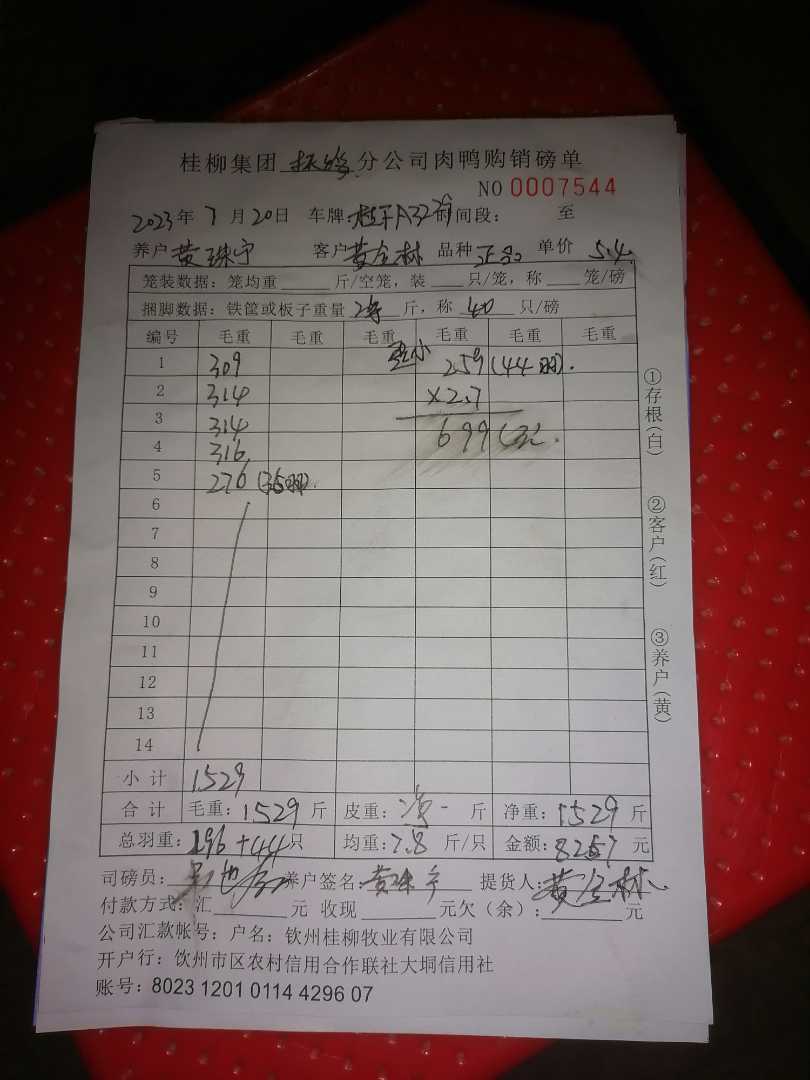 桂柳集团 分公司肉鸭购销磅单
NO 0007544
2023年 7月20日 车牌:桂 A3229 时间段: 至
养户 黄珠宁 客户 黄全林 品种 正品 单价 5.4
笼装数据:笼均重 斤/空笼,装 只/笼,称 笼/磅
捆脚数据:铁筐或板子重量 净 斤,称 40 只/磅
编号 毛重 毛重 毛重 毛重 毛重 毛重
1 309 259 (44羽).
2 314 ×2.7
3 314 699
4 316
5 276 (36羽).
6
7
8
9
10
11
12
13
14
小计 1529
合计 毛重:1529 斤 皮重: 净 斤 净重:1529 斤
总羽重:196+44只 均重:7.8 斤/只 金额:8257 元
司磅员: 养户签名:黄珠宁 提货人:黄全林
付款方式:汇 元 收现 元欠(余): 元
公司汇款帐号:户名:钦州桂柳牧业有限公司
开户行:钦州市区农村信用合作联社大垌信用社
账号:8023 1201 0114 4296 07
①存根(白)
②客户(红)
③养户(黄)